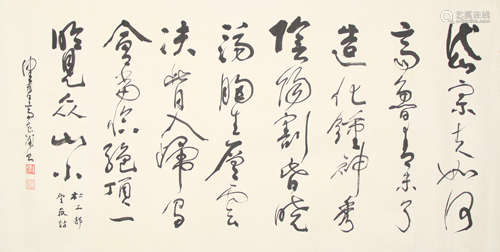 岱宗夫如何
齊魯青未了
造化鍾神秀
陰陽割昏曉
蕩胸生層雲
決眥入歸鳥
會當臨絕頂一
覽众山小
杜工部
望嶽詩